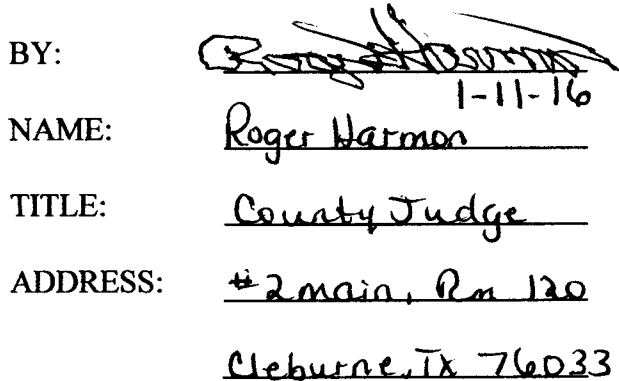 BY: Roger Harmon
1-11-16
NAME: Roger Harmon
TITLE: County Judge
ADDRESS: #2 main, Rm 120
Cleburne, Tx 76033